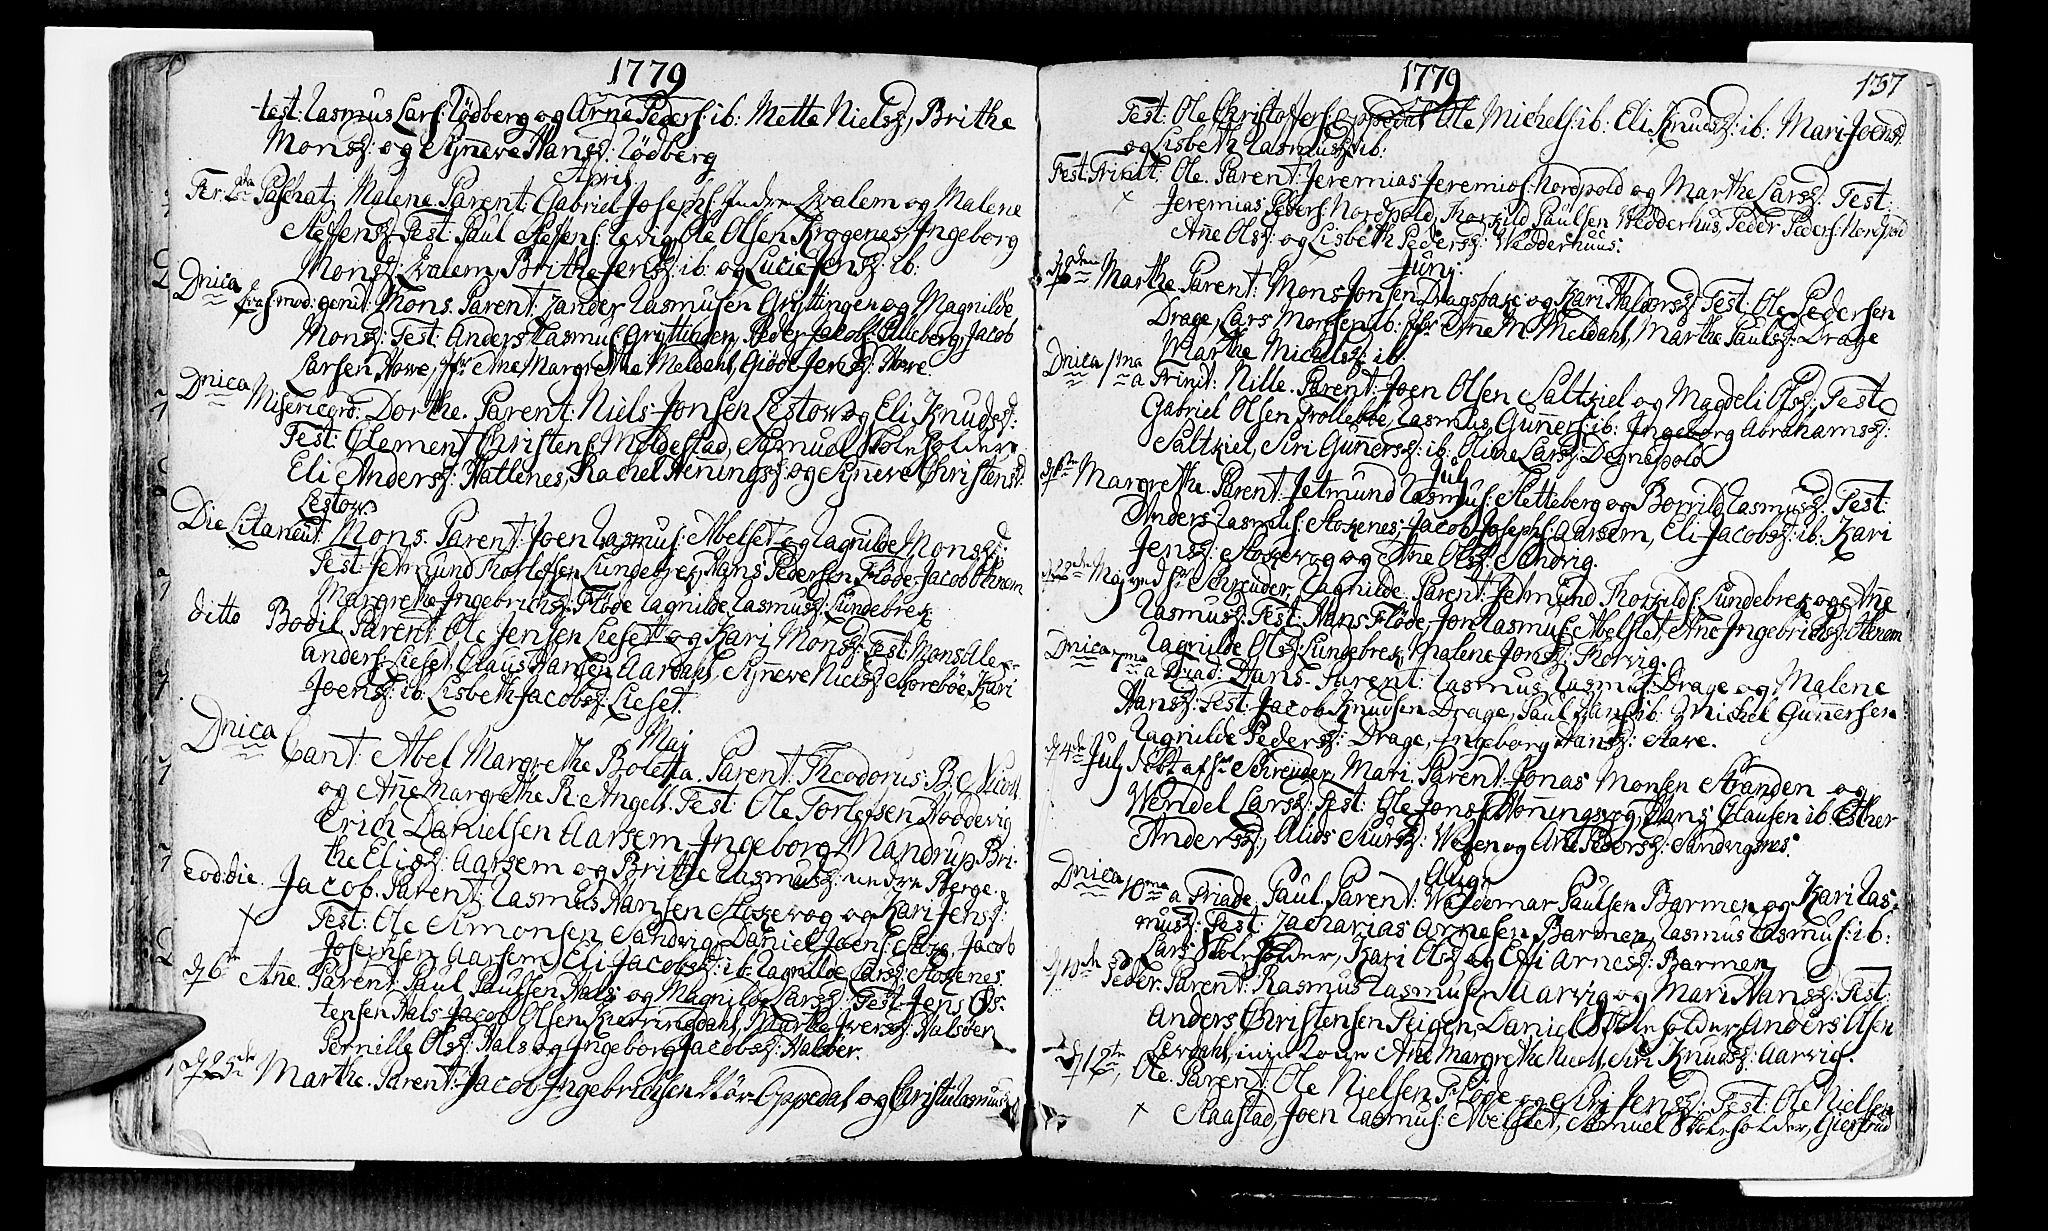 1779
test: Rasmus Lars: Rödberg og Arne Peders: ib: Mette Nielsd:, Brithe
Monsd: og Synneve Hansd: Rödberg
April
Fer: 2da Paschat: Malene. Parent: Gabriel Josephs: Indre Qvalem og Malene
Steffensd: Test: Paul Steffens: Revig, Ole Olsen Kryggenes, Ingeborg
Monsd: Qvalem, Brithe Jensd: ib: og Lucie Jensd: ib:
Dnica
Qvasimod: genit: Mons. Parent: Zander Rasmusen Gryttingen og Magnilde
Monsd: Test: Anders Rasmus: Gryttingen, Peder Jacobs: Lilleberg, Jacob
Larsen Howe, Jfr: Ane Margrethe Meldahl, Giöde Jensd: Howe
Dnica
Misericord: Dorthe. Parent: Niels Jonsen Lestow og Eli Knudsd:
Test: Clement Christens: Moldestad, Samuel Skoleholder
Eli Andersd: Hatlenes, Rachel Henningsd: og Synneve Christensd:
Lestow.
Die Litaneut. Mons. Parent: Joen Rasmus: Abelset og Ragnilde Monsd:
Test: Jetmund Lundebrek, Hans Pedersen Flöde, Jacob
Margrethe Ingebrichsd: Flöde Ragnilde Rasmusd: Lundebrek
ditto Bodil. Parent: Ole Jensen Lieset og Kari Monsd: Test: Mons
anders: Lieset, Claus Aardahl, Synneve Nielsd: Kari
Joensd: ib: Lisbeth Jacobsd: Lieset.
Maj
Dnica Cant: Abel Margrethe Boletta. Parent: Theodorus B:
og Anne Margrethe R: Angell. Test: Ole Torlefsen Hoddevig
Erich Danielsen Aarsem Ingeborg Mandrup, Bri-
the Eliasd: Aarsem og Brithe Rasmusd: under Berge.
eod: die. Jacob. Parent: Rasmus Hansen Stokevog og Kari Jensd:
Test: Ole Simonsen Sandvig, Daniel Joens: Jacob
Josephsen Aarsem, Eli Jacobsd: ib: Ragnilde Larsd: Stokenes
d. 6te Ane. Parent: Paul Paulsen Hals og Magnilde Larsd: Test: Jens Os-
tensen Hals, Jacob Olsen Kierringdahl, Marthe Iversd: Halsöer
Pernille Olsd: Hals og Ingeborg Jacobsd: Halsöer.
d. 25de Marthe. Parent: Jacob Ingebrichsen Stör-Oppedal og Christi Rasmusd:
1779
157
Test: Ole Christoffers: Oppedal Ole Michels: ib: Eli Knudsd: ib: Mari Joensd:
og Lisbeth Rasmusd: ib:
Fest: Trinit: Ole. Parent: Jeremias Jeremios: Nordpold og Marthe Larsd: Test:
Jeremias Peders: Nordpold, Thorkild Paulsen Wedderhus, Peder Peders: Nordpold
Ane Olsd: og Lisbeth Pedersd: Wedderhuus.
Junj
Marthe. Parent: Mons Jonsen Dragsbake og Kari Haldorsd: Test: Ole Pedersen
Drage, Lars Monsen ib: Jfr: Ane M: Meldahl, Marthe Paulsd: Drage
Marthe Michelsd: ib:
Dnica 1ma
a Trinit: Nille. Parent: Joen Olsen Saltkiel og Magdeli Olsd:, Test:
Gabriel Olsen Trollebøe, Rasmus Gunners: ib: Ingeborg Abrahamsd:
Saltkiel, Siri Gunnersd: ib: Oline Larsd: Degnepold
Julj
Margrethe. Parent: Jetmund Rasmus: Sletteberg og Borrild Rasmusd: Test:
Anders Rasmus: Stokenes, Jacob Josephs: Aarsem, Eli Jacobsd: ib: Kari
Jensd: Stokevog og Ane Olsd: Sandvig.
Maj ved Hr Schreuder, Ragnilde. Parent: Jetmund Thorkilds: Lundebrek og Ane
Rasmusd: Test: Hans Flöde, Jon Rasmus: Abelset, Ane Ingebrichsd:
Ragnilde Olsd: Lundebrek, Malene Jonsd: Thorvig.
Dnica 7ma
a Triad: Hans. Parent: Rasmus Rasmus: Drage og Malene
Hansd: Test: Jacob Knudsen Drage, Paul Hans: ib: Michel Gunnersen
Ragnilde Pedersd: Drage, Ingeborg Hansd: Aare.
d. 4de Julj döbt af Hr Schreuder, Mari. Parent: Jonas Monsen Stranden og
Wendel Larsd: Test: Ole Jons: Honningsvog, Hans Clausen ib: Esther
Andersd:, Alios Siursd: Wosen og Ane Pedersd: Sandvigsnes.
Aug:
Dnica 10ma a Triade. Paul. Parent: Waldemar Paulsen Barmen og Kari Ras-
musd: Test: Zacharias Arnesen Barmen, Rasmus Rasmus: ib:
Lars Skoleholder, Kari Olsd: og Eli Arnesd: Barmen
d. 10de Peder. Parent: Rasmus Rasmusen Aarvig og Mari Hansd: Test:
Anders Christensen Leigen, Daniel Skoleholder, Anders Olsen
Lerdahl, min Kone Ane Margrethe Siri Knudsd: Aarvig.
d. 12te, Ole. Parent: Ole Nielsen Flöde og Siri Jensd: Test: Ole Nielsen
Staastad, Joen Rasmus: Abelset, Samuel Skoleholder, Giertrud